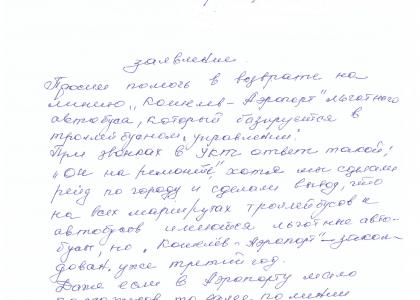 заявление.
Просим помочь в возврате на
линию „Кошелев-Аэропорт" льготного
автобуса, который базируется в
троллейбусном управлении.
При звонках в УКТС ответ такой:
„Он на ремонте", хотя мы сделали
рейд по городу и сделали вывод, что
на всех маршрутах троллейбусов и
автобусов имеются льготные авто-
бусы, но „Кошелёв-Аэропорт" -
дован уже третий год.
Даже если в Аэропорту мало
то далее по линии